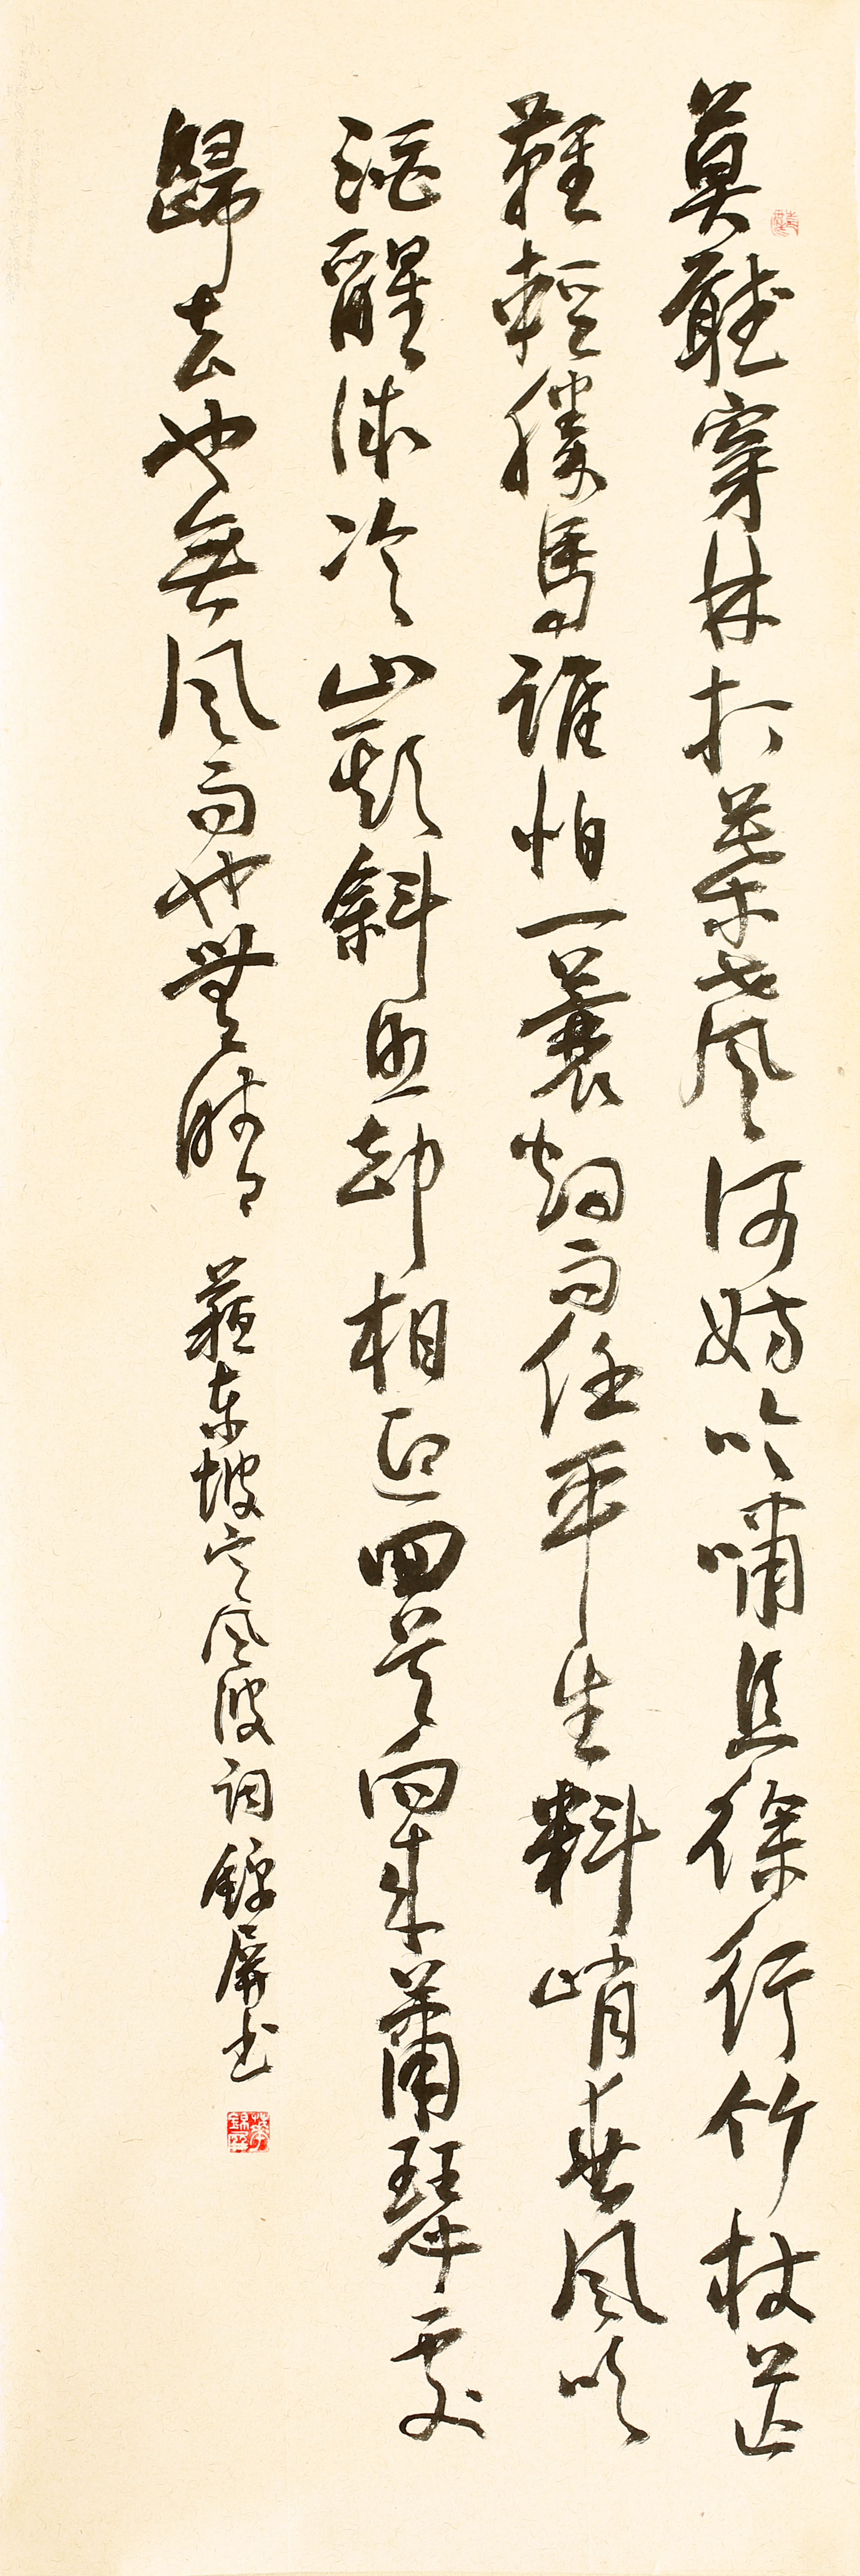 莫聽穿林打葉聲何妨吟嘯且徐行竹杖芒
鞋輕勝馬誰怕一蓑烟雨任平生料峭春風吹
酒醒微冷山頭斜照却相迎回首向來蕭瑟處
歸去也無風雨也無晴
蘇東坡定風波詞錦屏書